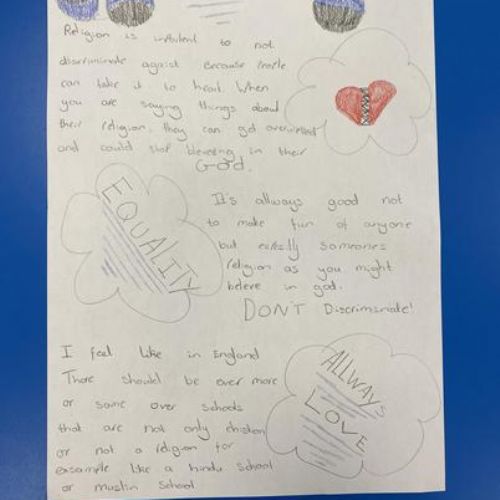 Religion is imfortent to not
discriminate against Because People
can take it to heart. When
you are saying things about
their religion, they can get overwelled
and could stop bleveing in their
God.
EQUALITY
It's allways good not
to make fun of anyone
but someones
religion as you might
beleve in god.
DON'T Discriminate!
I feel Like in England
There should be over more
or some over schools
that are not only chisten
or not a religion for
exsample like a hindu school
or muslin school
ALLWAYS
LOVE